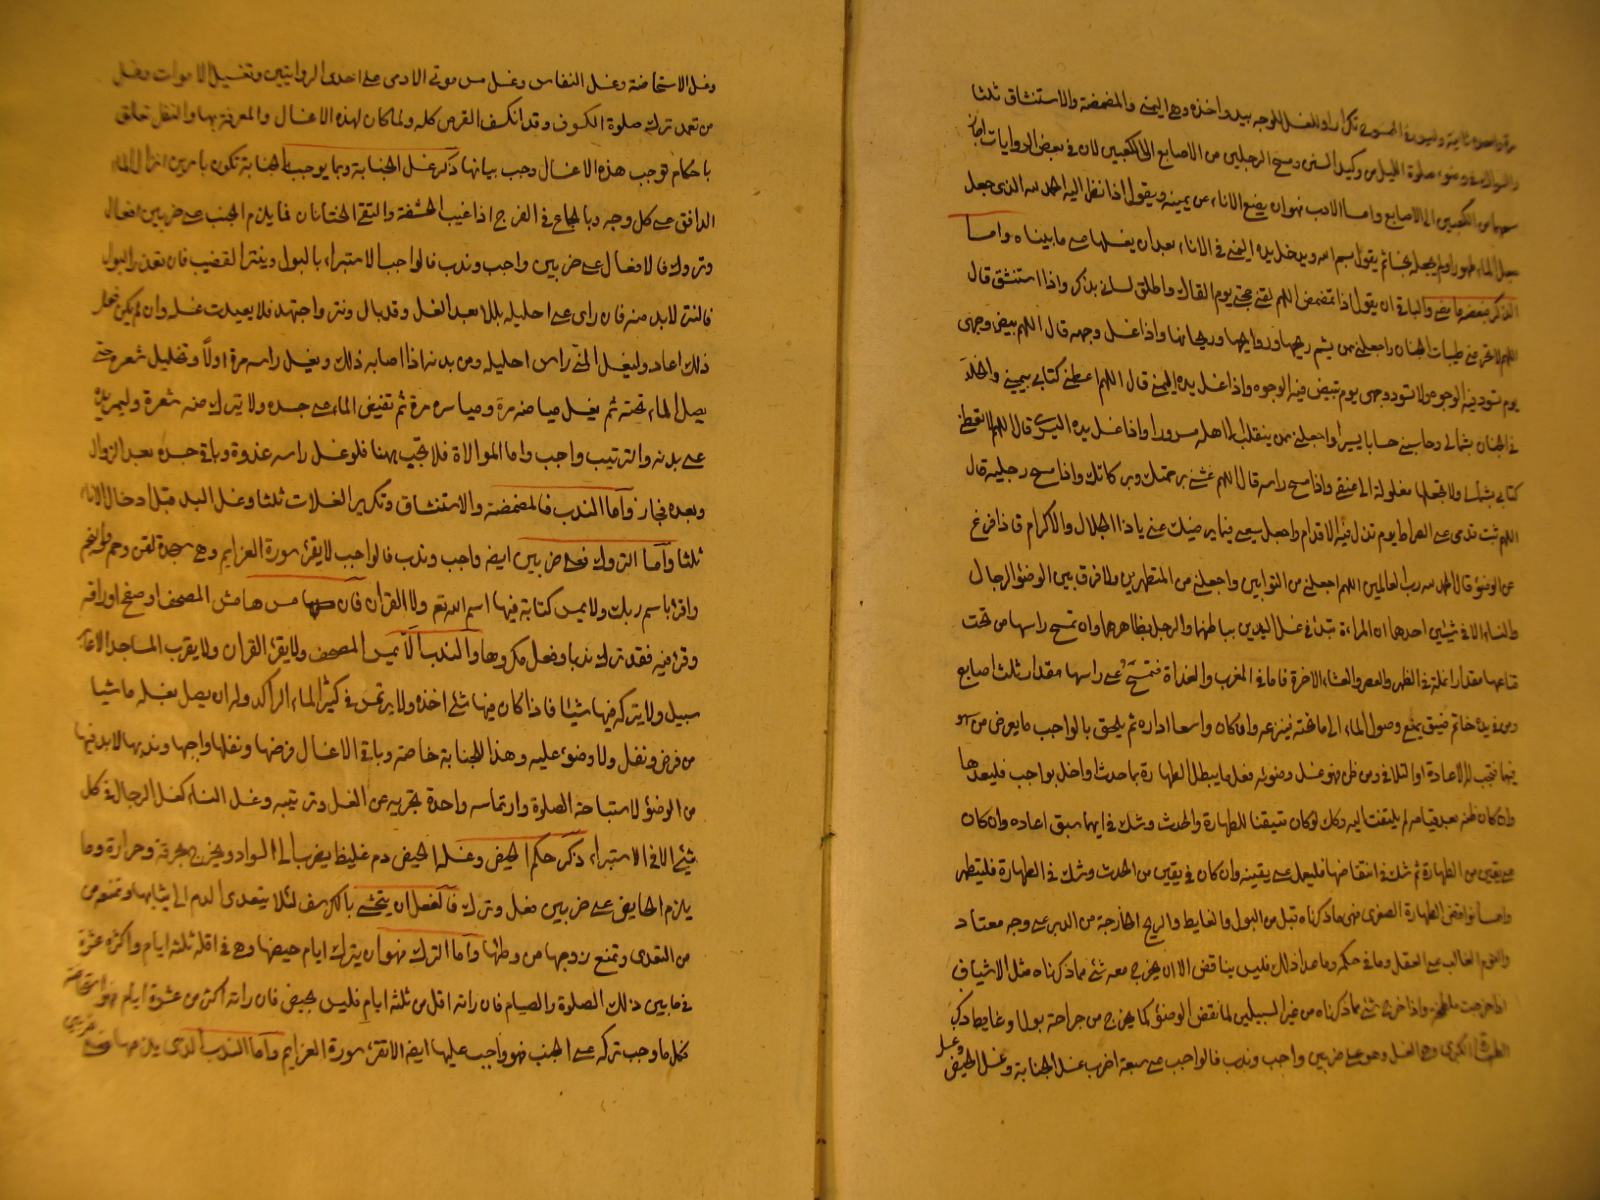 تكرار اذا للغسل للوجه بيد واحدة وهي اليمنى والمضمضة والاستنشاق ثلثا
صلوة الليل من وكيد السنن ومسح الرجلين من الاصابع الى الكعبين لان في بعض الروايات اجازة
مسحهما من الكعبين الى الاصابع واما الادب فهو ان يضع الاناء عن يمينه ويقول اذا نظر اليه الحمد لله الذي جعل
الماء طهورا ولم يجعله نجسا ثم يقول بسم الله ويدخل يده اليمنى في الاناء بعد ان يغسلها على ما بيناه واما
الذكر فبعضه ما مضى والباقي ان يقول اذا تمضمض اللهم لقني حجتي يوم القاك واطلق لساني بذكرك واذا استنشق قال
اللهم لا تحرمني طيبات الجنان واجعلني ممن يشم ريحها وروايحها وريحانها واذا غسل وجهه قال اللهم بيض وجهي
يوم تسود فيه الوجوه ولا تسود وجهي يوم تبيض فيه الوجوه واذا غسل يده اليمنى قال اللهم اعطني كتابي بيميني والخلد
في الجنان بشمالي وحاسبني حسابا يسيرا واجعلني ممن ينقلب الى اهله مسرورا واذا غسل يده اليسرى قال اللهم لا تعطني
كتابي بشمالي ولا تجعلها مغلولة الى عنقي واذا مسح راسه قال اللهم غشني برحمتك وبركاتك واذا مسح رجليه قال
اللهم ثبت قدمي على الصراط يوم تذل فيه الاقدام واجعل سعيي فيما يرضيك عني ياذا الجلال والاكرام فاذا فرغ
من الوضوء قال الحمد لله رب العالمين اللهم اجعلني من التوابين واجعلني من المتطهرين ولا فرق بين الوضوء الرجال
والنساء الا في شيئين احدهما ان المراءة تبتدئ في غسل اليدين بباطنهما والرجل بظاهرهما وان تمسح راسها من تحت
قناعها مقدار انملة في الظهر والعصر والعشاء الاخرة فاما في المغرب والغداة فتمسح على راسها مقدار ثلث اصابع
ومن في يده خاتم ضيق يمنع وصول الماء الى ما تحته ينزعه وان كان واسعا اداره ثم يلحق بالواجب ما يعرض من سهو
فيها فتجب الاعادة او التلافي ومن ظن فهو غسل وضوئه فعل ما يبطل الطهارة بما حدث او اخل بواجب فليعدها
وان كان ظنه بعد قيامه لم يلتفت اليه وكل لو كان متيقنا للطهارة والحدث وشك في ايهما سبق اعاده وان كان
على يقين من الطهارة ثم شك في انتقاضها فليعمل على يقينه وان كان في يقين من الحدث وشك في الطهارة فليتطهر
واما نواقض الطهارة الصغرى فهي ما ذكرناه قبل من البول والغايط والريح الخارجة من الدبر على وجه معتاد
والنوم الغالب على العقل وما في حكمه وما عدا ذلك فليس بناقض الا ان يخرج معه شئ مما ذكرناه مثل الاشياف
اذا خرجت ملطخة واذا خرج شئ مما ذكرناه من غير السبيلين لما نقض الوضوء كما يخرج من جراحة بولا وغايطا ذكر
الطهارة الكبرى وهي الغسل وهو على ضربين واجب وندب فالواجب على سبعة اضرب غسل الجنابة وغسل الحيض وغسل
وغسل الاستحاضة وغسل النفاس وغسل مس موتى الادمي على احدى الروايتين وتغسيل الاموات وغسل
من تعمد ترك صلوة الكسوف وقد انكسف القرص كله ولما كان لهذه الاغسال والمعرفة بها والنقل تعلق
باحكام توجب هذه الاغسال وجب بيانها ذكر غسل الجنابة وبما يوجب الجنابة تكون بامرين انزال الماء
الدافق على كل وجه وبالجماع في الفرج اذا غيب الحشفة والتقى الختانان فما يلزم الجنب على ضربين افعال
وتروك فالافعال على ضربين واجب وندب فالواجب الاستبراء بالبول وينتر القضيب فان تعذر البول
فالنتر لابد منه فان راى على احليله بللا بعد الغسل وقد بال ونتر واجتهد فلا يعيدن غسله وان لم يكن فعل
ذلك اعاد وليغسل المني راس احليله ومن بدنه اذا اصابه ذلك ويغسل راسه مرة اولا وتخليل شعره حتى
يصل الماء تحته ثم يغسل ميامنه مرة ومياسره مرة ثم تفيض الماء على جسده ولا يترك منه شعرة وليمر يده
على بدنه والترتيب واجب واما الموالاة فلا تجب بهنا فلو غسل راسه غدوة وباقي جسده بعد الزوال
وبعده فجاز واما الندب فالمضمضة والاستنشاق وتكرير الغسلات ثلثا وغسل اليد قبل ادخال الاناء
ثلثا واما التروك فعلى ضربين ايضه واجب وندب فالواجب لا يقرئ سورة العزايم وهي سجدة لقمن وحم والنجم
واقرا باسم ربك ولا يمس كتابة فيها اسم الله تع ولا القران فان مس هامش المصحف او صفح اوراقه
وقرئ فيه فقد ترك ندبا وفعل مكروها والندب الا يمس المصحف ولا يقرئ القران ولا يقرب المساجد الا عابر
سبيل ولا يترك فيها شيئا فاذا كان فيها شئ اخذه ولا يرتمس في كثير الماء الراكد وله ان يصل بغسله ما شيا
من فرض ونفل ولا وضوء عليه وهذا للجنابة خاصة وباقي الاغسال فرضها ونفلها واجبها وندبها لابد فيها
من الوضوء لاستباحة الصلوة وارتماسه واحدة تجزيه عن الغسل وترتيبه وغسل النساء كغسل الرجال في كل
شئ الا في الاستبراء ذكر حكم الحيض وغسله الحيض دم غليظ يضرب الى السواد ويخرج بحرقة وحرارة وما
يلزم الحايض على ضربين فعل وترك فالفعل ان يحتشي بالكرسف لئلا يتعدى الدم الى ثيابها وتمنعه من
من التعدى وتمنع زوجها من وطئها واما الترك فهو ان يترك ايام حيضها وهي في اقله ثلثة ايام واكثره عشرة
فما بين ذلك الصلوة والصيام فان راته اقل من ثلثة ايام فليس بحيض فان راته اكثر من عشرة ايام فهو استحاضة
فكل ما وجب تركه على الجنب فهو واجب عليها ايضه الا تقرئ سورة العزايم واما الندب الذي يلزمها